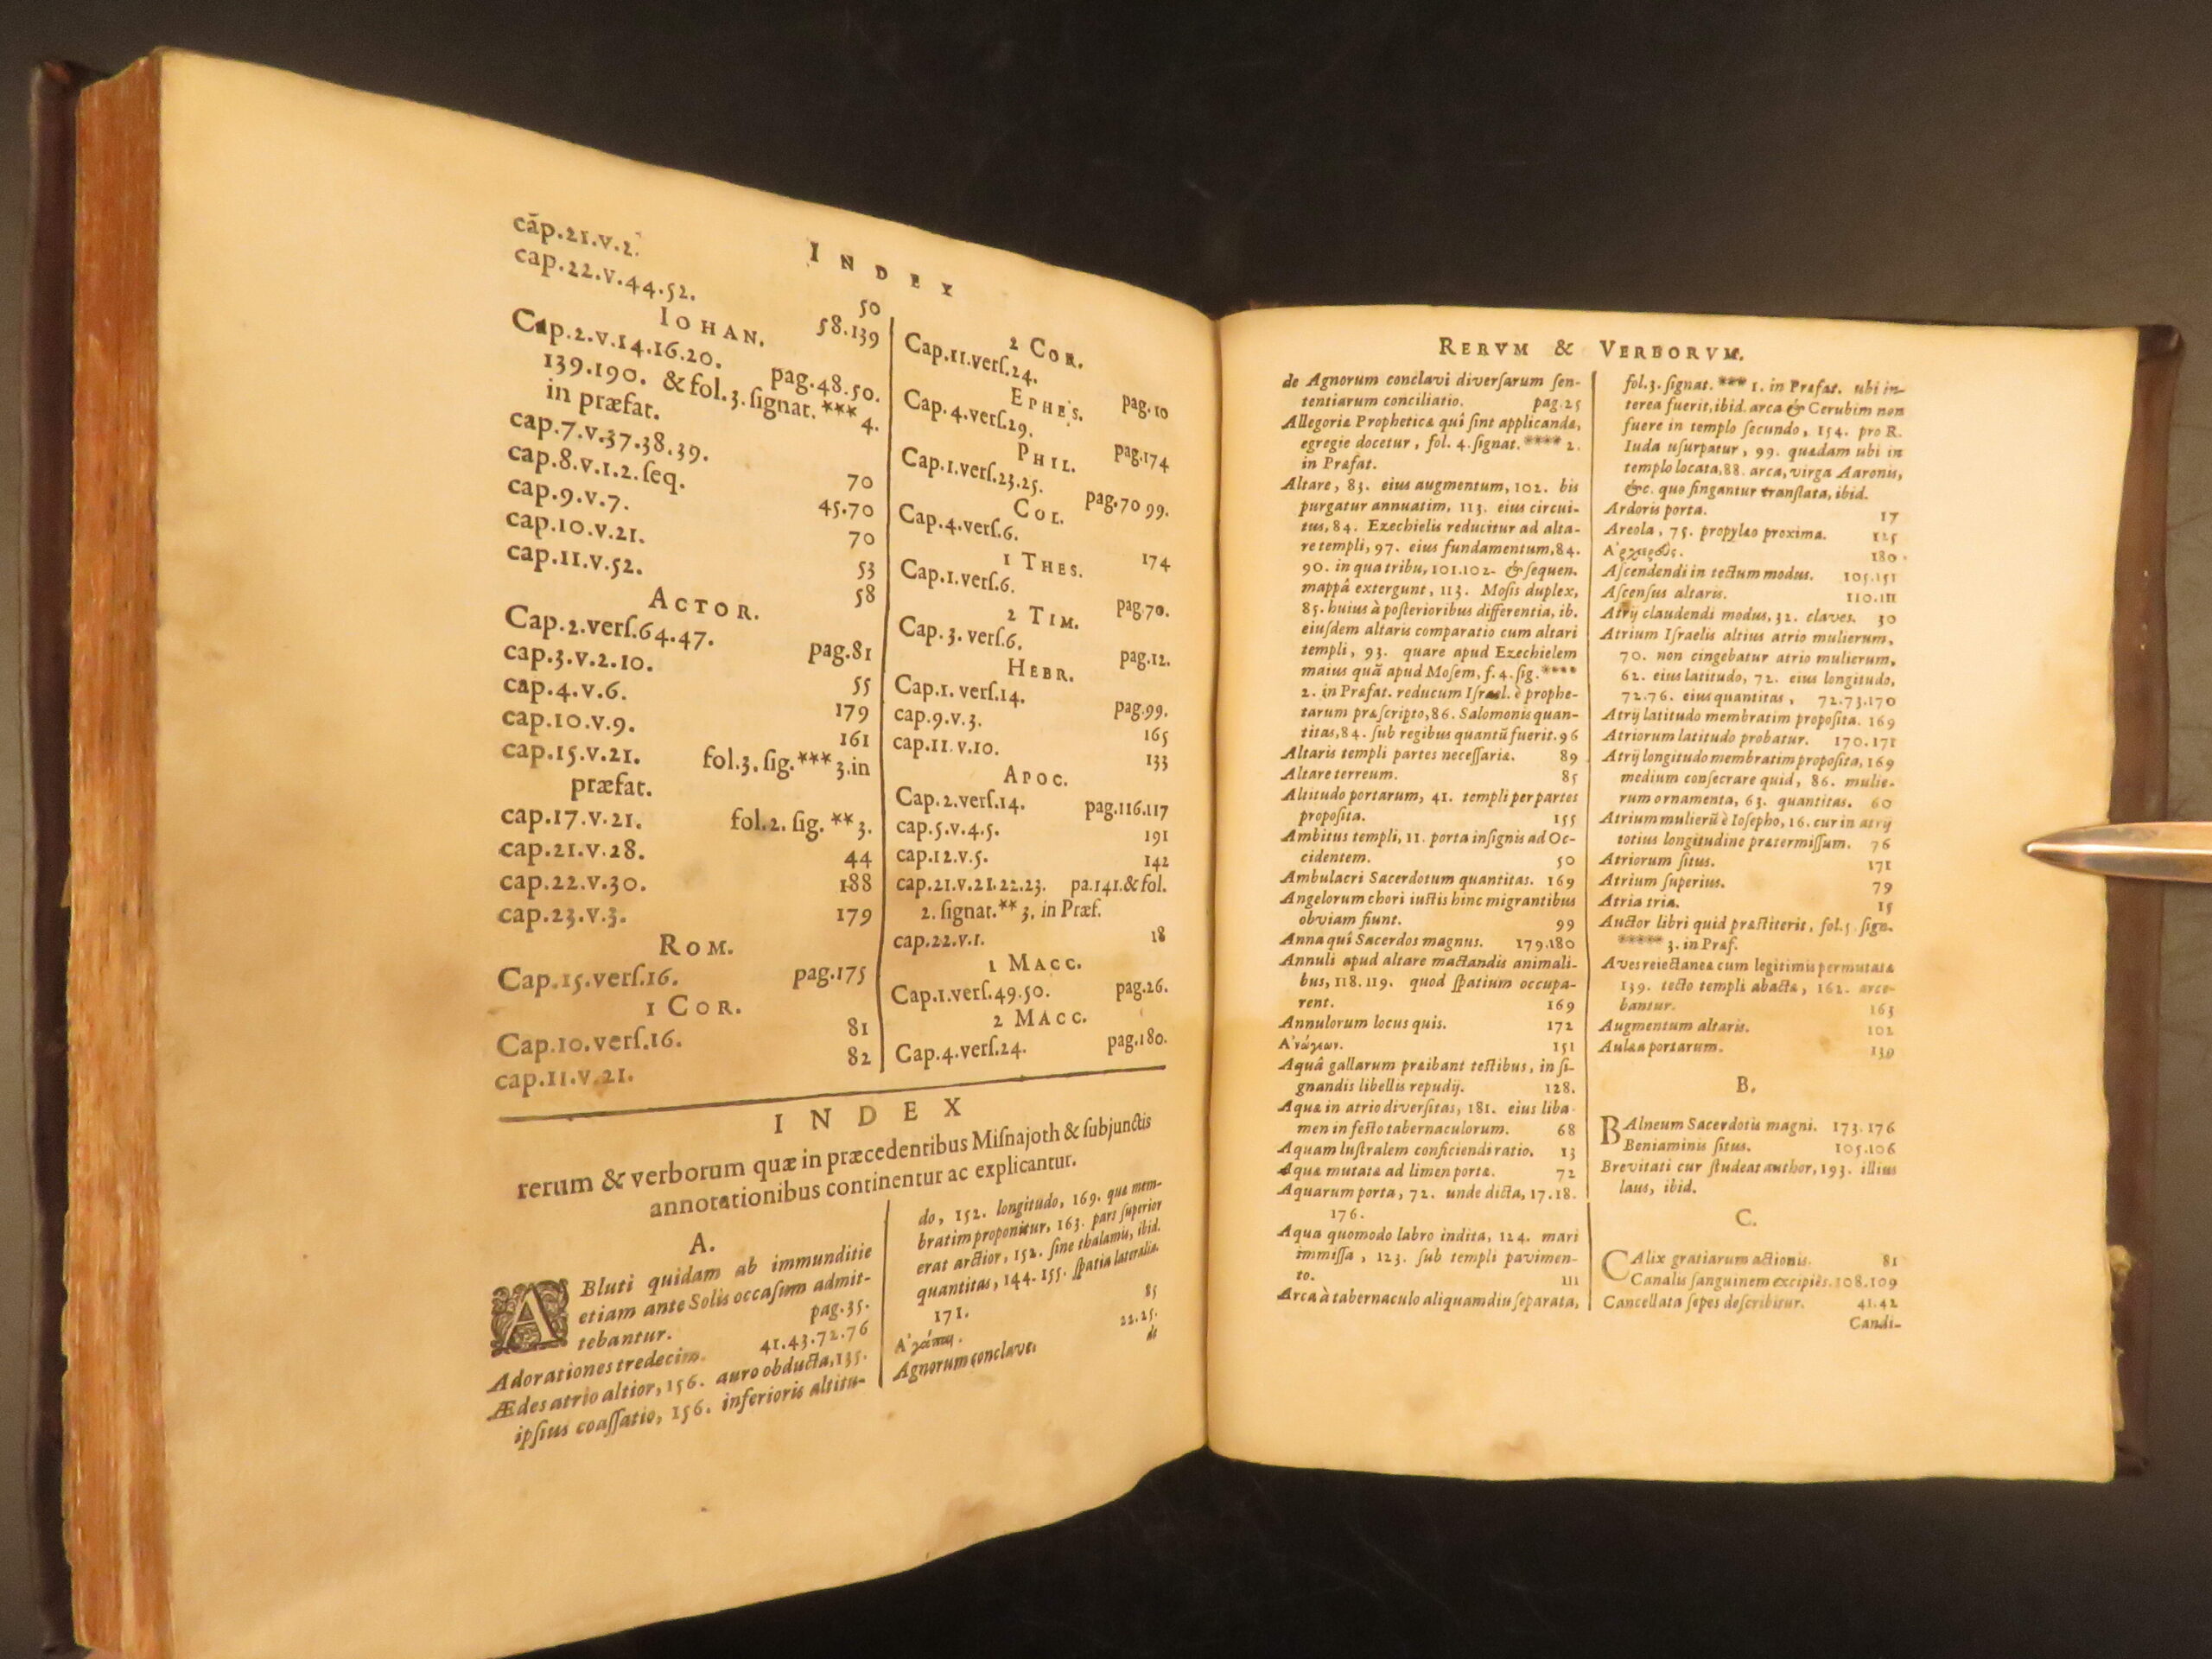 INDEX
cap.21.v.2. 50
cap.22.v.44.52. 58.139
IOHAN.
Cap.2.v.14.16.20. pag.48.50.
139.190. & fol.3.ſignat. *** 4.
in præfat.
cap.7.v.37.38.39. 70
cap.8.v.1.2.ſeq. 45.70
cap.9.v.7. 70
cap.10.v.21. 53
cap.11.v.52. 58
ACTOR.
Cap.2.verſ.64.47. pag.81
cap.3.v.2.10. 55
cap.4.v.6. 179
cap.10.v.9. 161
cap.15.v.21. fol.3.ſig.***3.in
præfat.
cap.17.v.21. fol.2.ſig.**3.
cap.21.v.28. 44
cap.22.v.30. 188
cap.23.v.3. 179
ROM.
Cap.15.verſ.16. pag.175
1 COR.
Cap.10.verſ.16. 81
cap.11.v.21. 82
2 COR.
Cap.11.verſ.24. pag.10
EPHES.
Cap.4.verſ.29. pag.174
PHIL.
Cap.1.verſ.23.25. pag.70 99.
COL.
Cap.4.verſ.6. 174
1 THES.
Cap.1.verſ.6. pag.70.
2 TIM.
Cap.3.verſ.6. pag.12.
HEBR.
Cap.1.verſ.14. pag.99.
cap.9.v.3. 165
cap.11.v.10. 133
APOC.
Cap.2.verſ.14. pag.116.117
cap.5.v.4.5. 191
cap.12.v.5. 142
cap.21.v.21.22.23. pa.141.& fol.
2.ſignat.**3, in Præf.
cap.22.v.1. 18
1 MACC.
Cap.1.verſ.49.50. pag.26.
2 MACC.
Cap.4.verſ.24. pag.180.
INDEX
rerum & verborum quæ in præcedentibus Miſnajoth & ſubjunctis
annotationibus continentur ac explicantur.
A.
ABluti quidam ab immunditie
etiam ante Solis occaſum admit-
tebantur. pag.35.
Adorationes tredecim. 41.43.72.76
Ædes atrio altior, 156. auro obducta, 135.
ipſius coaſſatio, 156. inferioris altitu-
do, 152. longitudo, 169. quæ mem-
bratim proponitur, 163. pars ſuperior
erat arctior, 152. ſine thalamis, ibid.
quantitas, 144. 155. ſpatia lateralia.
171.
Ἀγάπαι. 85
Agnorum conclave. 22.25.
de
RERVM & VERBORVM.
de Agnorum conclavi diverſarum ſen-
tentiarum conciliatio. pag.25
Allegoriæ Propheticæ quî ſint applicandæ,
egregie docetur, fol. 4. ſignat. **** 2.
in Præfat.
Altare, 83. eius augmentum, 102. bis
purgatur annuatim, 113. eius circui-
tus, 84. Ezechielis reducitur ad alta-
re templi, 97. eius fundamentum, 84.
90. in qua tribu, 101.102. & ſequen.
mappâ extergunt, 113. Moſis duplex,
85. huius à poſterioribus differentia, ib.
eiuſdem altaris comparatio cum altari
templi, 93. quare apud Ezechielem
maius quã apud Moſem, f.4. ſig. ****
2. in Præfat. reducum Iſrael. è prophe-
tarum præſcripto, 86. Salomonis quan-
titas, 84. ſub regibus quantũ fuerit. 96
Altaris templi partes neceſſariæ. 89
Altare terreum. 85
Altitudo portarum, 41. templi per partes
propoſita. 155
Ambitus templi, 11. porta inſignis ad Oc-
cidentem. 50
Ambulacri Sacerdotum quantitas. 169
Angelorum chori iuſtis hinc migrantibus
obviam fiunt. 99
Anna quî Sacerdos magnus. 179.180
Annuli apud altare mactandis animali-
bus, 118.119. quod ſpatium occupa-
rent. 169
Annulorum locus quis. 172
Ἀνώγεων. 151
Aquâ gallarum præibant teſtibus, in ſi-
gnandis libellis repudij. 128.
Aquæ in atrio diverſitas, 181. eius liba-
men in feſto tabernaculorum. 68
Aquam luſtralem conficiendi ratio. 13
Aquæ mutatæ ad limen portæ. 72
Aquarum porta, 72. unde dicta, 17.18.
176.
Aqua quomodo labro indita, 124. mari
immiſſa, 123. ſub templi pavimen-
to. 111
Arca à tabernaculo aliquamdiu ſeparata,
fol.3. ſignat. *** 1. in Præfat. ubi in-
terea fuerit, ibid. arca & Cerubim non
fuere in templo ſecundo, 154. pro R.
Iuda uſurpatur, 99. quædam ubi in
templo locata, 88. arca, virga Aaronis,
&c. quo fingantur tranſlata, ibid.
Ardoris porta. 17
Areola, 75. propylæo proxima. 125
Ἀρχιερεύς. 180.
Aſcendendi in tectum modus. 105.151
Aſcenſus altaris. 110.111
Atrij claudendi modus, 32. claves. 30
Atrium Iſraelis altius atrio mulierum,
70. non cingebatur atrio mulierum,
62. eius latitudo, 72. eius longitudo,
72.76. eius quantitas, 72.73.170
Atrij latitudo membratim propoſita. 169
Atriorum latitudo probatur. 170.171
Atrij longitudo membratim propoſita, 169
medium conſecrare quid, 86. mulie-
rum ornamenta, 63. quantitas. 60
Atrium mulierũ è Ioſepho, 16. cur in atrij
totius longitudine prætermiſſum. 76
Atriorum ſitus. 171
Atrium ſuperius. 79
Atria tria. 15
Auctor libri quid præſtiterit, fol.5. ſign.
***** 3. in Præf.
Aves reiectanea cum legitimis permutatæ
139. tecto templi abactæ, 162. arce-
bantur. 163
Augmentum altaris. 102
Aulæa portarum. 139
B.
BAlneum Sacerdotis magni. 173.176
Beniaminis ſitus. 105.106
Brevitati cur ſtudeat author, 193. illius
laus, ibid.
C.
CAlix gratiarum actionis. 81
Canalis ſanguinem excipiẽs. 108.109
Cancellata ſepes deſcribitur. 41.42
Candi-